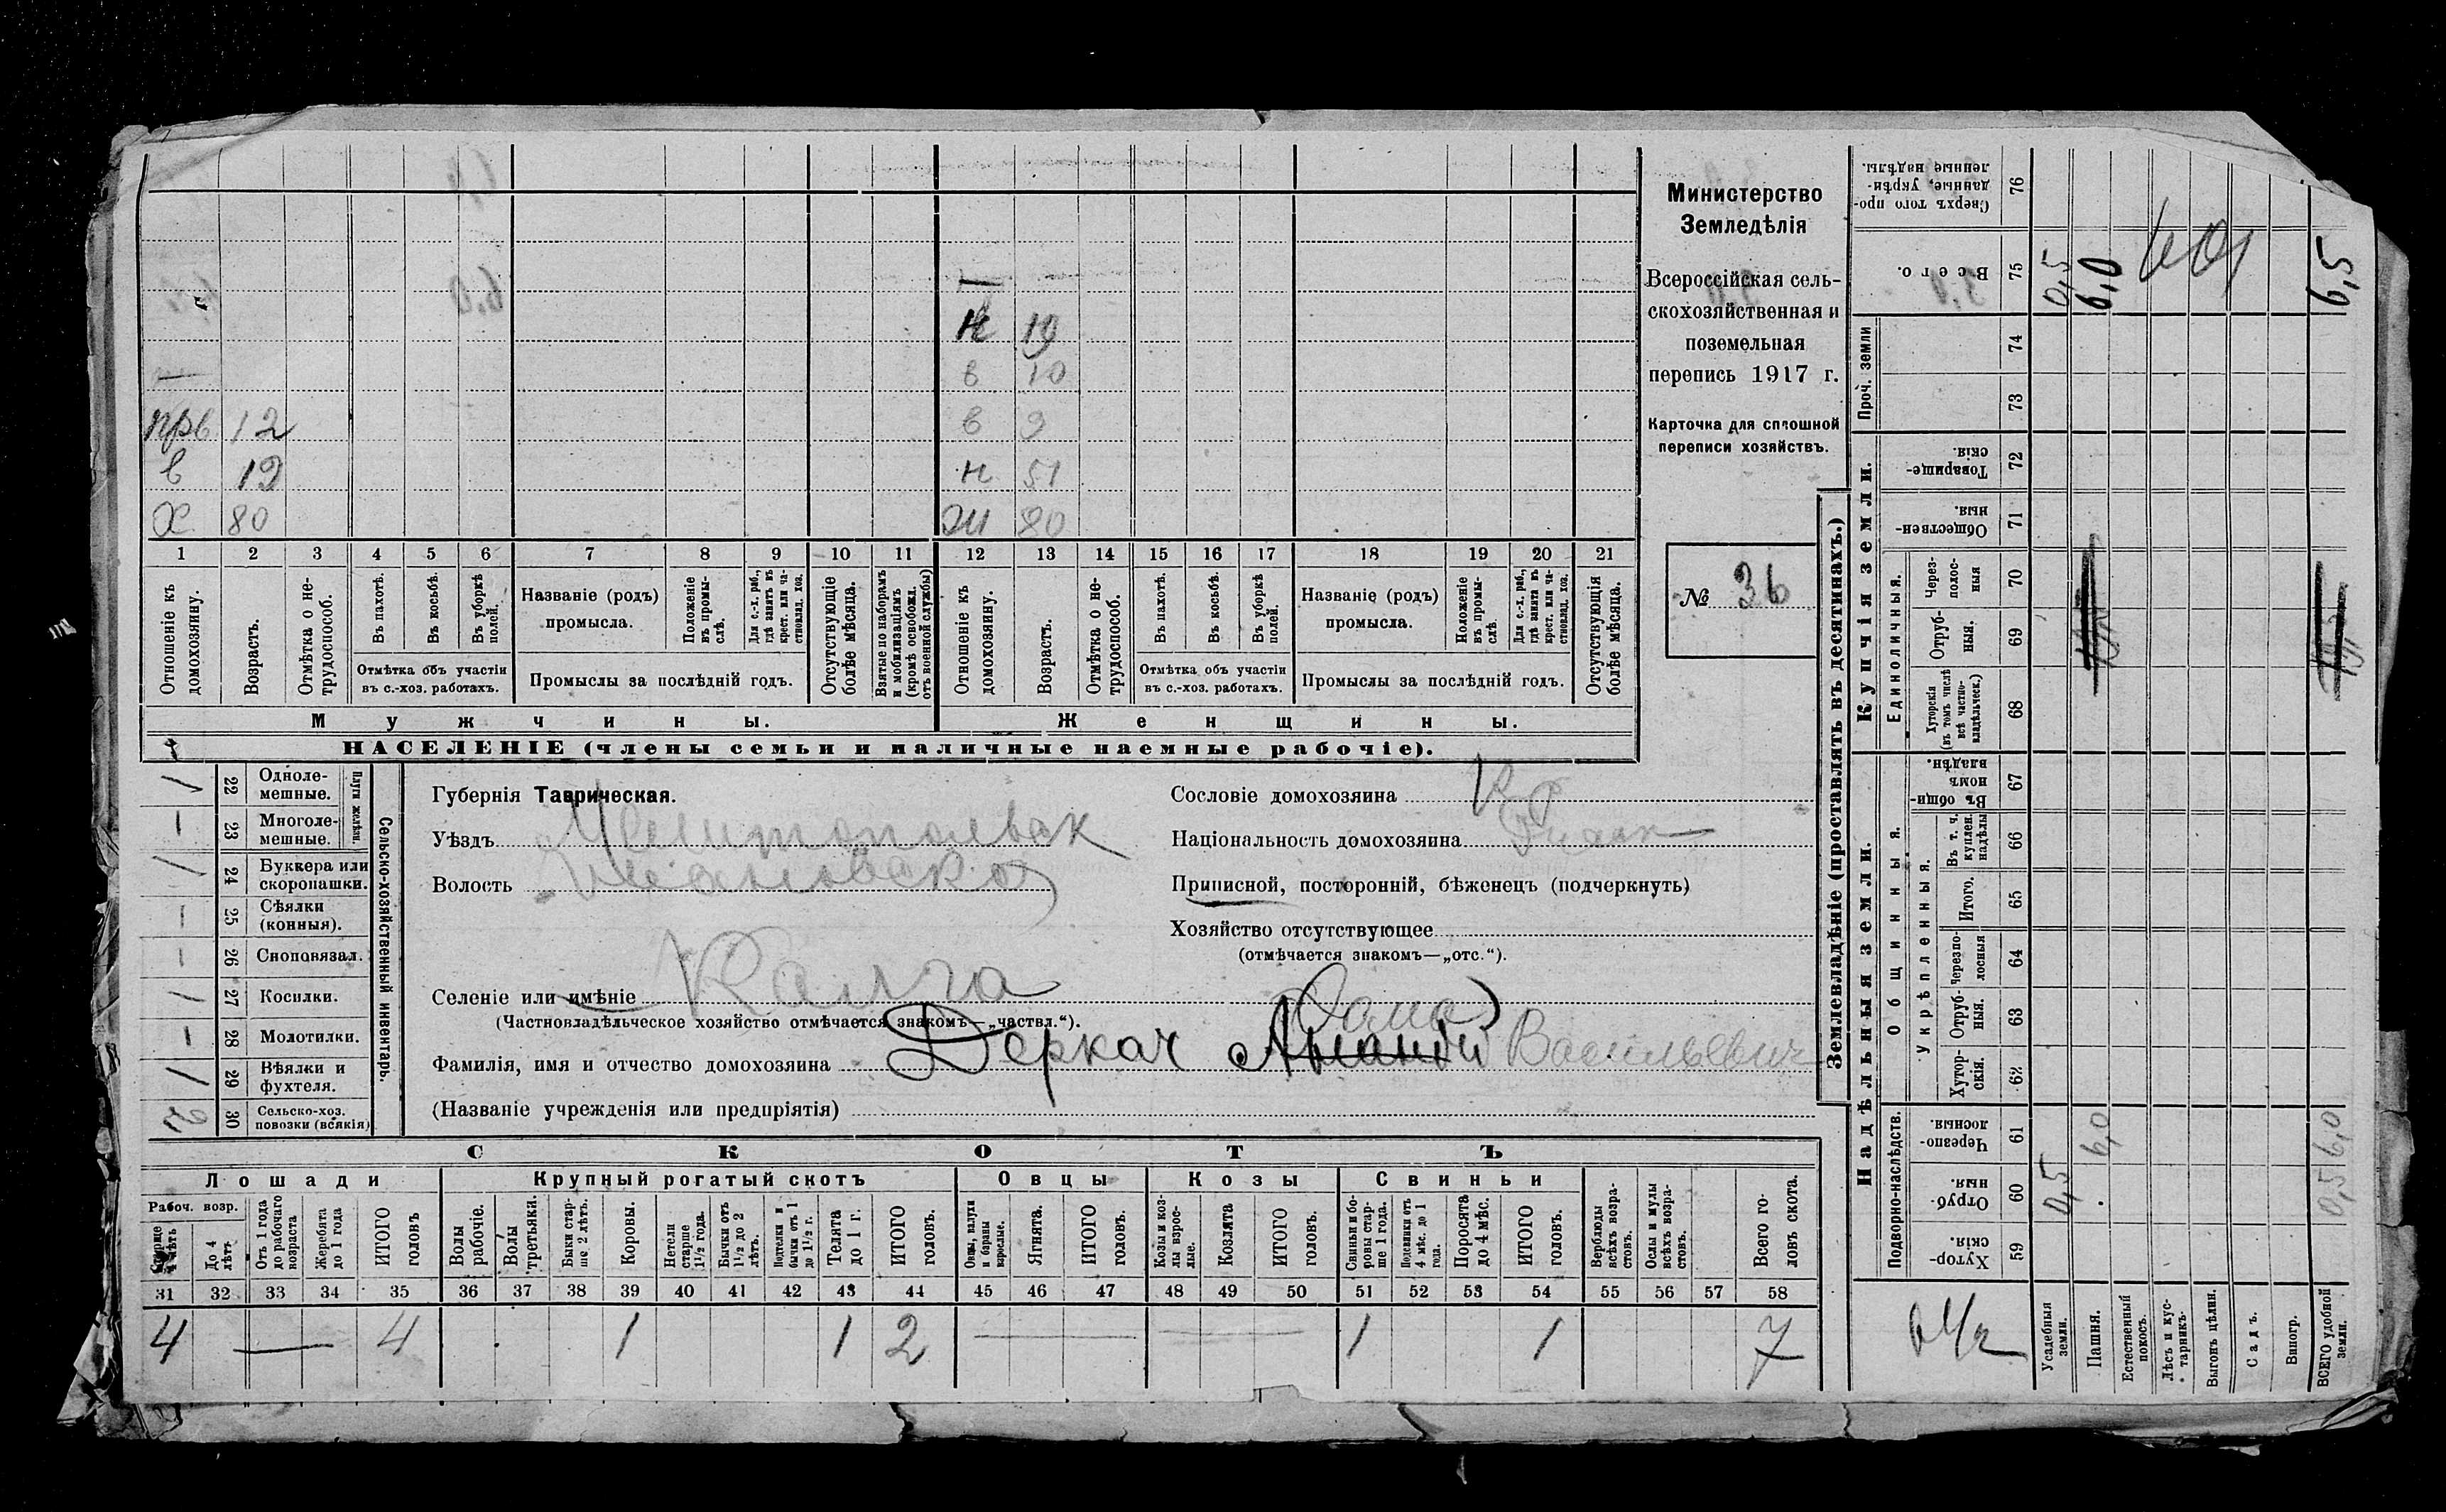 Министерство
Земледѣлія
Всероссійская сель-
скохозяйственная и
поземельная
перепись 1917 г.
Карточка для сплошной
переписи хозяйствъ.
№ 36
— 
н 19
— в 10
прв 12 в 9
в 19 н 51
Х 80 Ж 80
1 2 3 4 5 6 7 8 9 10 11 12 13 14 15 16 17 18 19 20 21
Отношеніе къ домохозяину.
Возрастъ.
Отмѣтка о не-трудоспособ.
Въ пахотѣ.
Въ косьбѣ.
Въ уборкѣ полей.
Отмѣтка объ участіи
въ с.-хоз. работахъ.
Названіе (родъ)
промысла.
Положеніе въ промы-слѣ.
Для с.-х. раб., гдѣ занятъ въ крест. или ча-стновлад. хоз.
Промыслы за послѣдній годъ.
Отсутствующіе болѣе мѣсяца.
Взятые по наборамъ и мобилизаціямъ (кромѣ освобожд. отъ военной службы)
Отношеніе къ домохозяину.
Возрастъ.
Отмѣтка о не-трудоспособ.
Въ пахотѣ.
Въ косьбѣ.
Въ уборкѣ полей.
Отмѣтка объ участіи
въ с.-хоз. работахъ.
Названіе (родъ)
промысла.
Положеніе въ промы-слѣ.
Для с.-х. раб., гдѣ занята въ крест. или ча-стновлад. хоз.
Промыслы за послѣдній годъ.
Отсутствующія болѣе мѣсяца.
Мужчины. Женщины.
НАСЕЛЕНІЕ (члены семьи и наличные наемные рабочіе).
Сельско-хозяйственный инвентарь.
Плуги желѣзн.
1 22 Одноле-мешные.
— 23 Многоле-мешные.
1 24 Буккера или скоропашки.
— 25 Сѣялки (конныя).
— 26 Сноповязал.
1 27 Косилки.
— 28 Молотилки.
1 29 Вѣялки и фухтеля.
30 Сельско-хоз. повозки (всякія)
Губернія Таврическая.
Уѣздъ Мелитопольск
Волость
Селеніе или имѣніе Калга
(Частновладѣльческое хозяйство отмѣчается знакомъ—„частвл.“).
Фамилія, имя и отчество домохозяина Деркач Фома Васильевич
(Названіе учрежденія или предпріятія)
Сословіе домохозяина Кр
Національность домохозяина
Приписной, посторонній, бѣженецъ (подчеркнуть)
Хозяйство отсутствующее
(отмѣчается знакомъ—„отс.“).
СКОТЪ
Лошади Крупный рогатый скотъ Овцы Козы Свиньи
Рабоч. возр.
Старше 4 лѣтъ
До 4 лѣтъ
Отъ 1 года до рабочаго возраста
Жеребята до 1 года
ИТОГО головъ
Волы рабочіе.
Волы третьяки.
Быки стар-ше 2 лѣтъ.
Коровы.
Нетели старше 1½ года.
Бычки отъ 1½ до 2 лѣтъ.
Подтелки и бычки отъ 1 до 1½ г.
Телята до 1 г.
ИТОГО головъ.
Овцы, валухи и бараны взрослые.
Ягнята.
ИТОГО головъ.
Козы и коз-лы взрос-лые.
Козлята
ИТОГО головъ.
Свиньи и бо-ровы стар-ше 1 года.
Подсвинки отъ 4 мѣс. до 1 года.
Поросята до 4 мѣс.
ИТОГО головъ.
Верблюды всѣхъ возра-стовъ.
Ослы и мулы всѣхъ возра-стовъ.
Всего го-ловъ скота.
31 32 33 34 35 36 37 38 39 40 41 42 43 44 45 46 47 48 49 50 51 52 53 54 55 56 57 58
4 — — 4 1 1 2 — — 1 1 7
Землевладѣніе (проставлять въ десятинахъ.)
Надѣльныя земли. Купчія земли. Проч. земли
Подворно-наслѣдств.
Общинныя.
Укрѣпленныя.
Единоличныя.
Хутор-скія. 59
Отруб-ныя. 60
Черезпо-лосныя. 61
Хутор-скія. 62
Отруб-ныя. 63
Черезпо-лосныя 64
Итого. 65
Въ т. ч. куплен. надѣлы 66
Въ общи-номъ владѣн. 67
Хуторскія (въ томъ числѣ всѣ частно-владѣльческ.) 68
Отруб-ныя. 69
Через-полос-ныя 70
Обществен-ныя. 71
Товарище-скія. 72
73
74
Всего. 75
Сверхъ того про-данные, укрѣп-ленные надѣлы. 76
Усадебныя земли. 0,5 0,5
Пашня. 6,0 6,0
Естественный покосъ.
Лѣсъ и кус-тарникъ.
Выгонъ цѣлин.
Садъ.
Виногр.
ВСЕГО удобной земли. 0,5 6,0 6,5